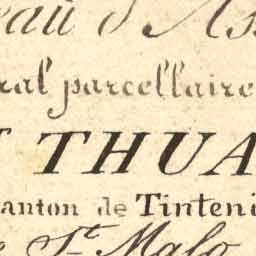 eau d'Ass
ral parcellaire
T THUA
anton de Tinteni
e St Malo